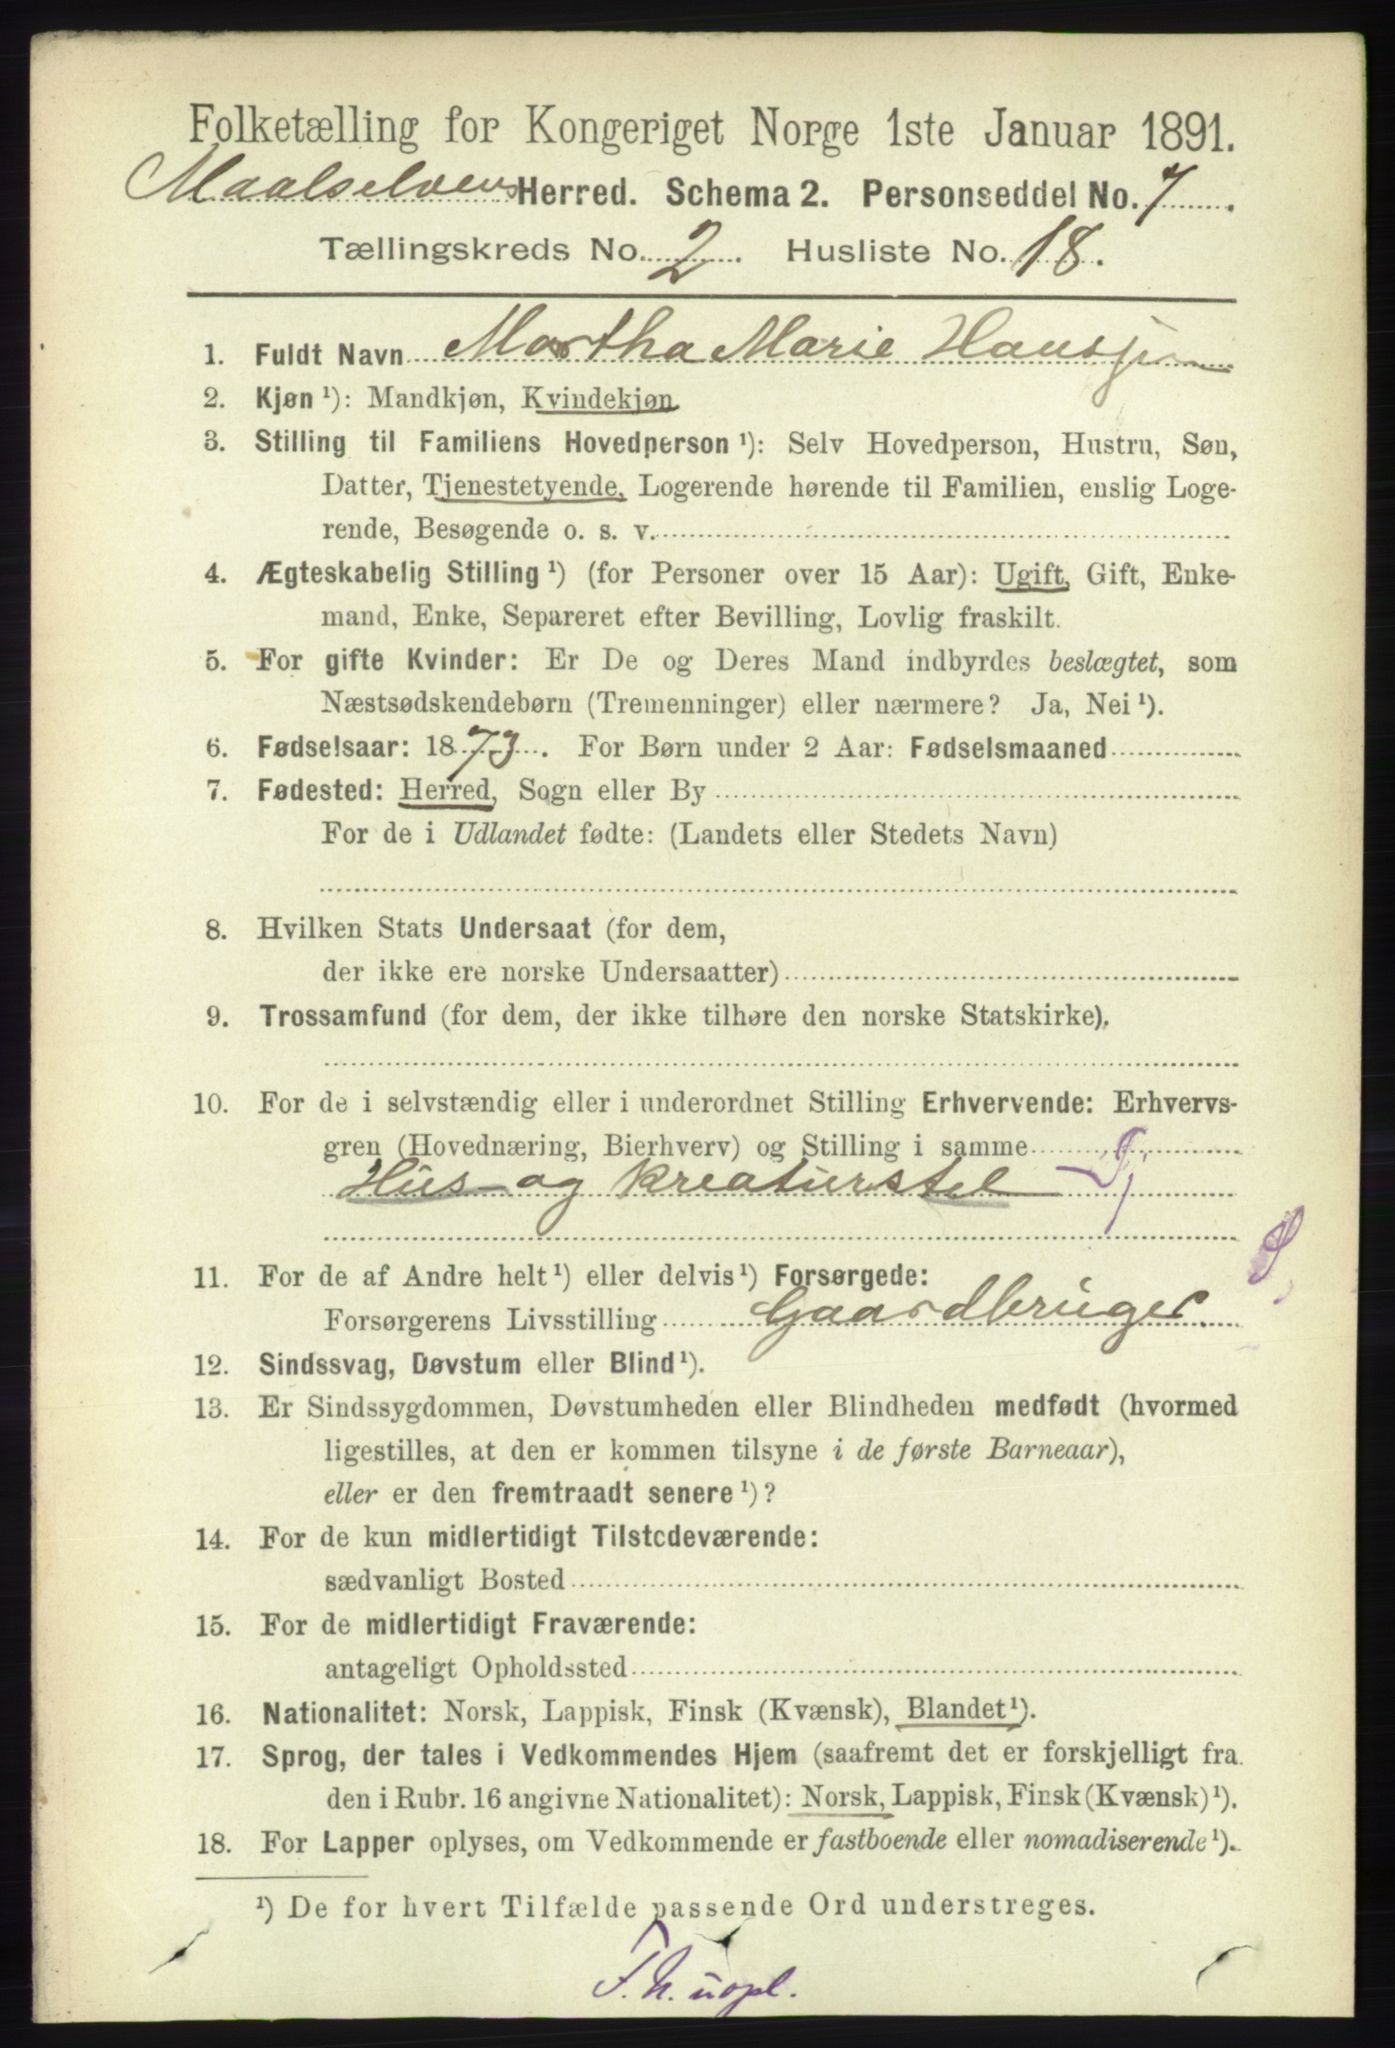 Folketælling for Kongeriget Norge 1ste Januar 1891.
Maalselvens Herred. Schema 2. Personseddel No. 7
Tællingskreds No. 2. Husliste No. 18.
1. Fuldt Navn Martha Marie
2. Kjøn ¹): Mandkjøn, Kvindekjøn
3. Stilling til Familiens Hovedperson ¹): Selv Hovedperson, Hustru, Søn,
Datter, Tjenestetyende, Logerende hørende til Familien, enslig Loge-
rende, Besøgende o. s. v.
4. Ægteskabelig Stilling ¹) (for Personer over 15 Aar): Ugift, Gift, Enke-
mand, Enke, Separeret efter Bevilling, Lovlig fraskilt.
5. For gifte Kvinder: Er De og Deres Mand indbyrdes beslægtet, som
Næstsødskendebørn (Tremenninger) eller nærmere? Ja, Nei ¹).
6. Fødselsaar: 1873. For Børn under 2 Aar: Fødselsmaaned
7. Fødested: Herred, Sogn eller By
For de i Udlandet fødte: (Landets eller Stedets Navn)
8. Hvilken Stats Undersaat (for dem,
der ikke ere norske Undersaatter)
9. Trossamfund (for dem, der ikke tilhøre den norske Statskirke).
10. For de i selvstændig eller i underordnet Stilling Erhvervende: Erhvervs-
gren (Hovednæring, Bierhverv) og Stilling i samme
Hus- og Kreaturstel
11. For de af Andre helt ¹) eller delvis ¹) Forsørgede:
Forsørgerens Livsstilling Gaardbruger.
12. Sindssvag, Døvstum eller Blind ¹).
13. Er Sindssygdommen, Døvstumheden eller Blindheden medfødt (hvormed
ligestilles, at den er kommen tilsyne i de første Barneaar),
eller er den fremtraadt senere ¹)?
14. For de kun midlertidigt Tilstedeværende:
sædvanligt Bosted
15. For de midlertidigt Fraværende:
antageligt Opholdssted
16. Nationalitet: Norsk, Lappisk, Finsk (Kvænsk), Blandet ¹).
17. Sprog, der tales i Vedkommendes Hjem (saafremt det er forskjelligt fra
den i Rubr. 16 angivne Nationalitet): Norsk, Lappisk, Finsk (Kvænsk) ¹).
18. For Lapper oplyses, om Vedkommende er fastboende eller nomadiserende ¹).
¹) De for hvert Tilfælde passende Ord understreges.